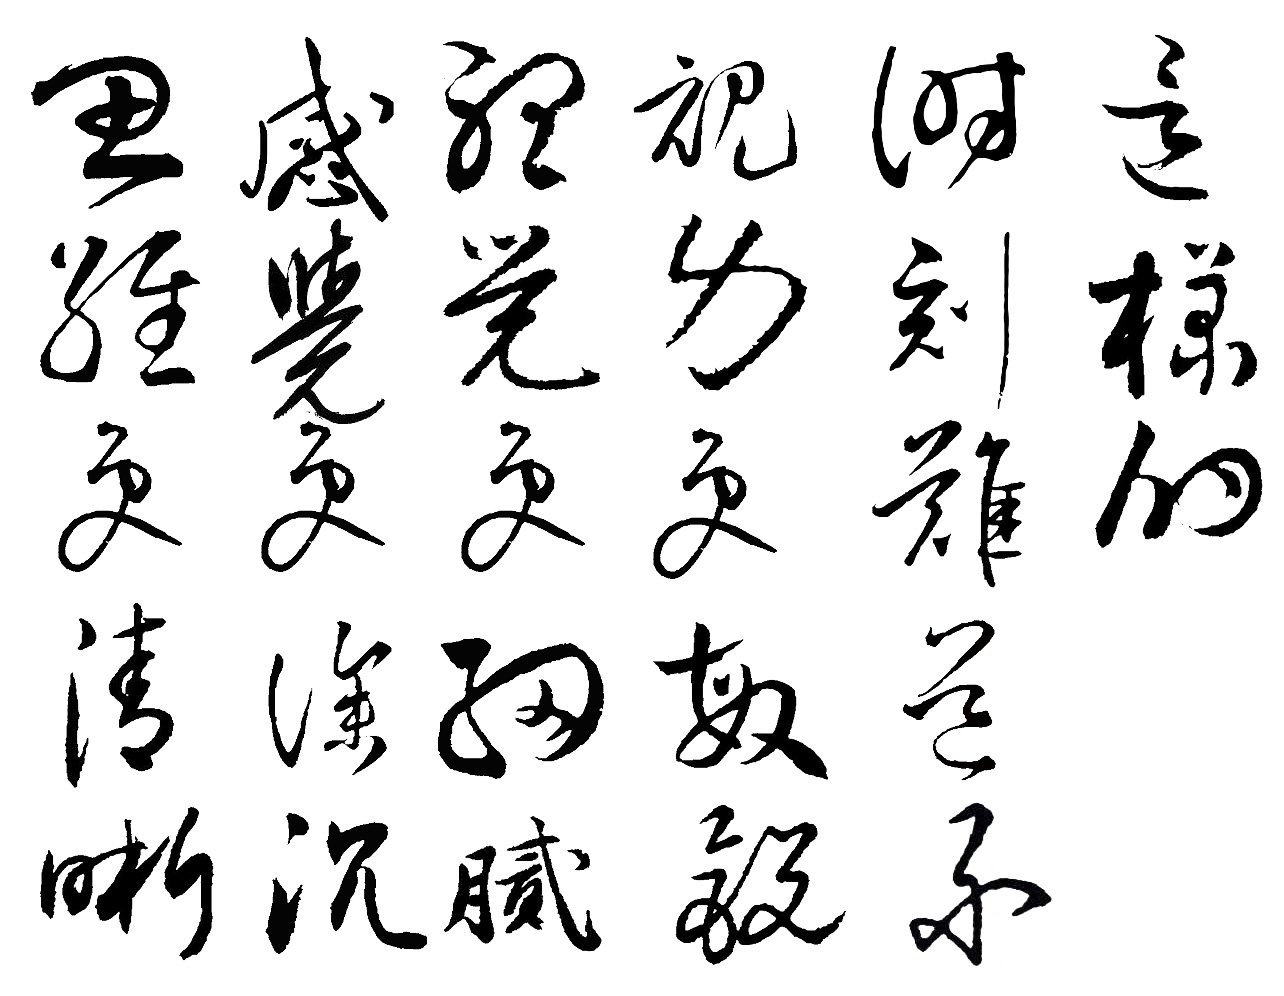 這樣的
時刻難道不
視力更敏銳
聽覺更細膩
感覺更深沉
思維更清晰